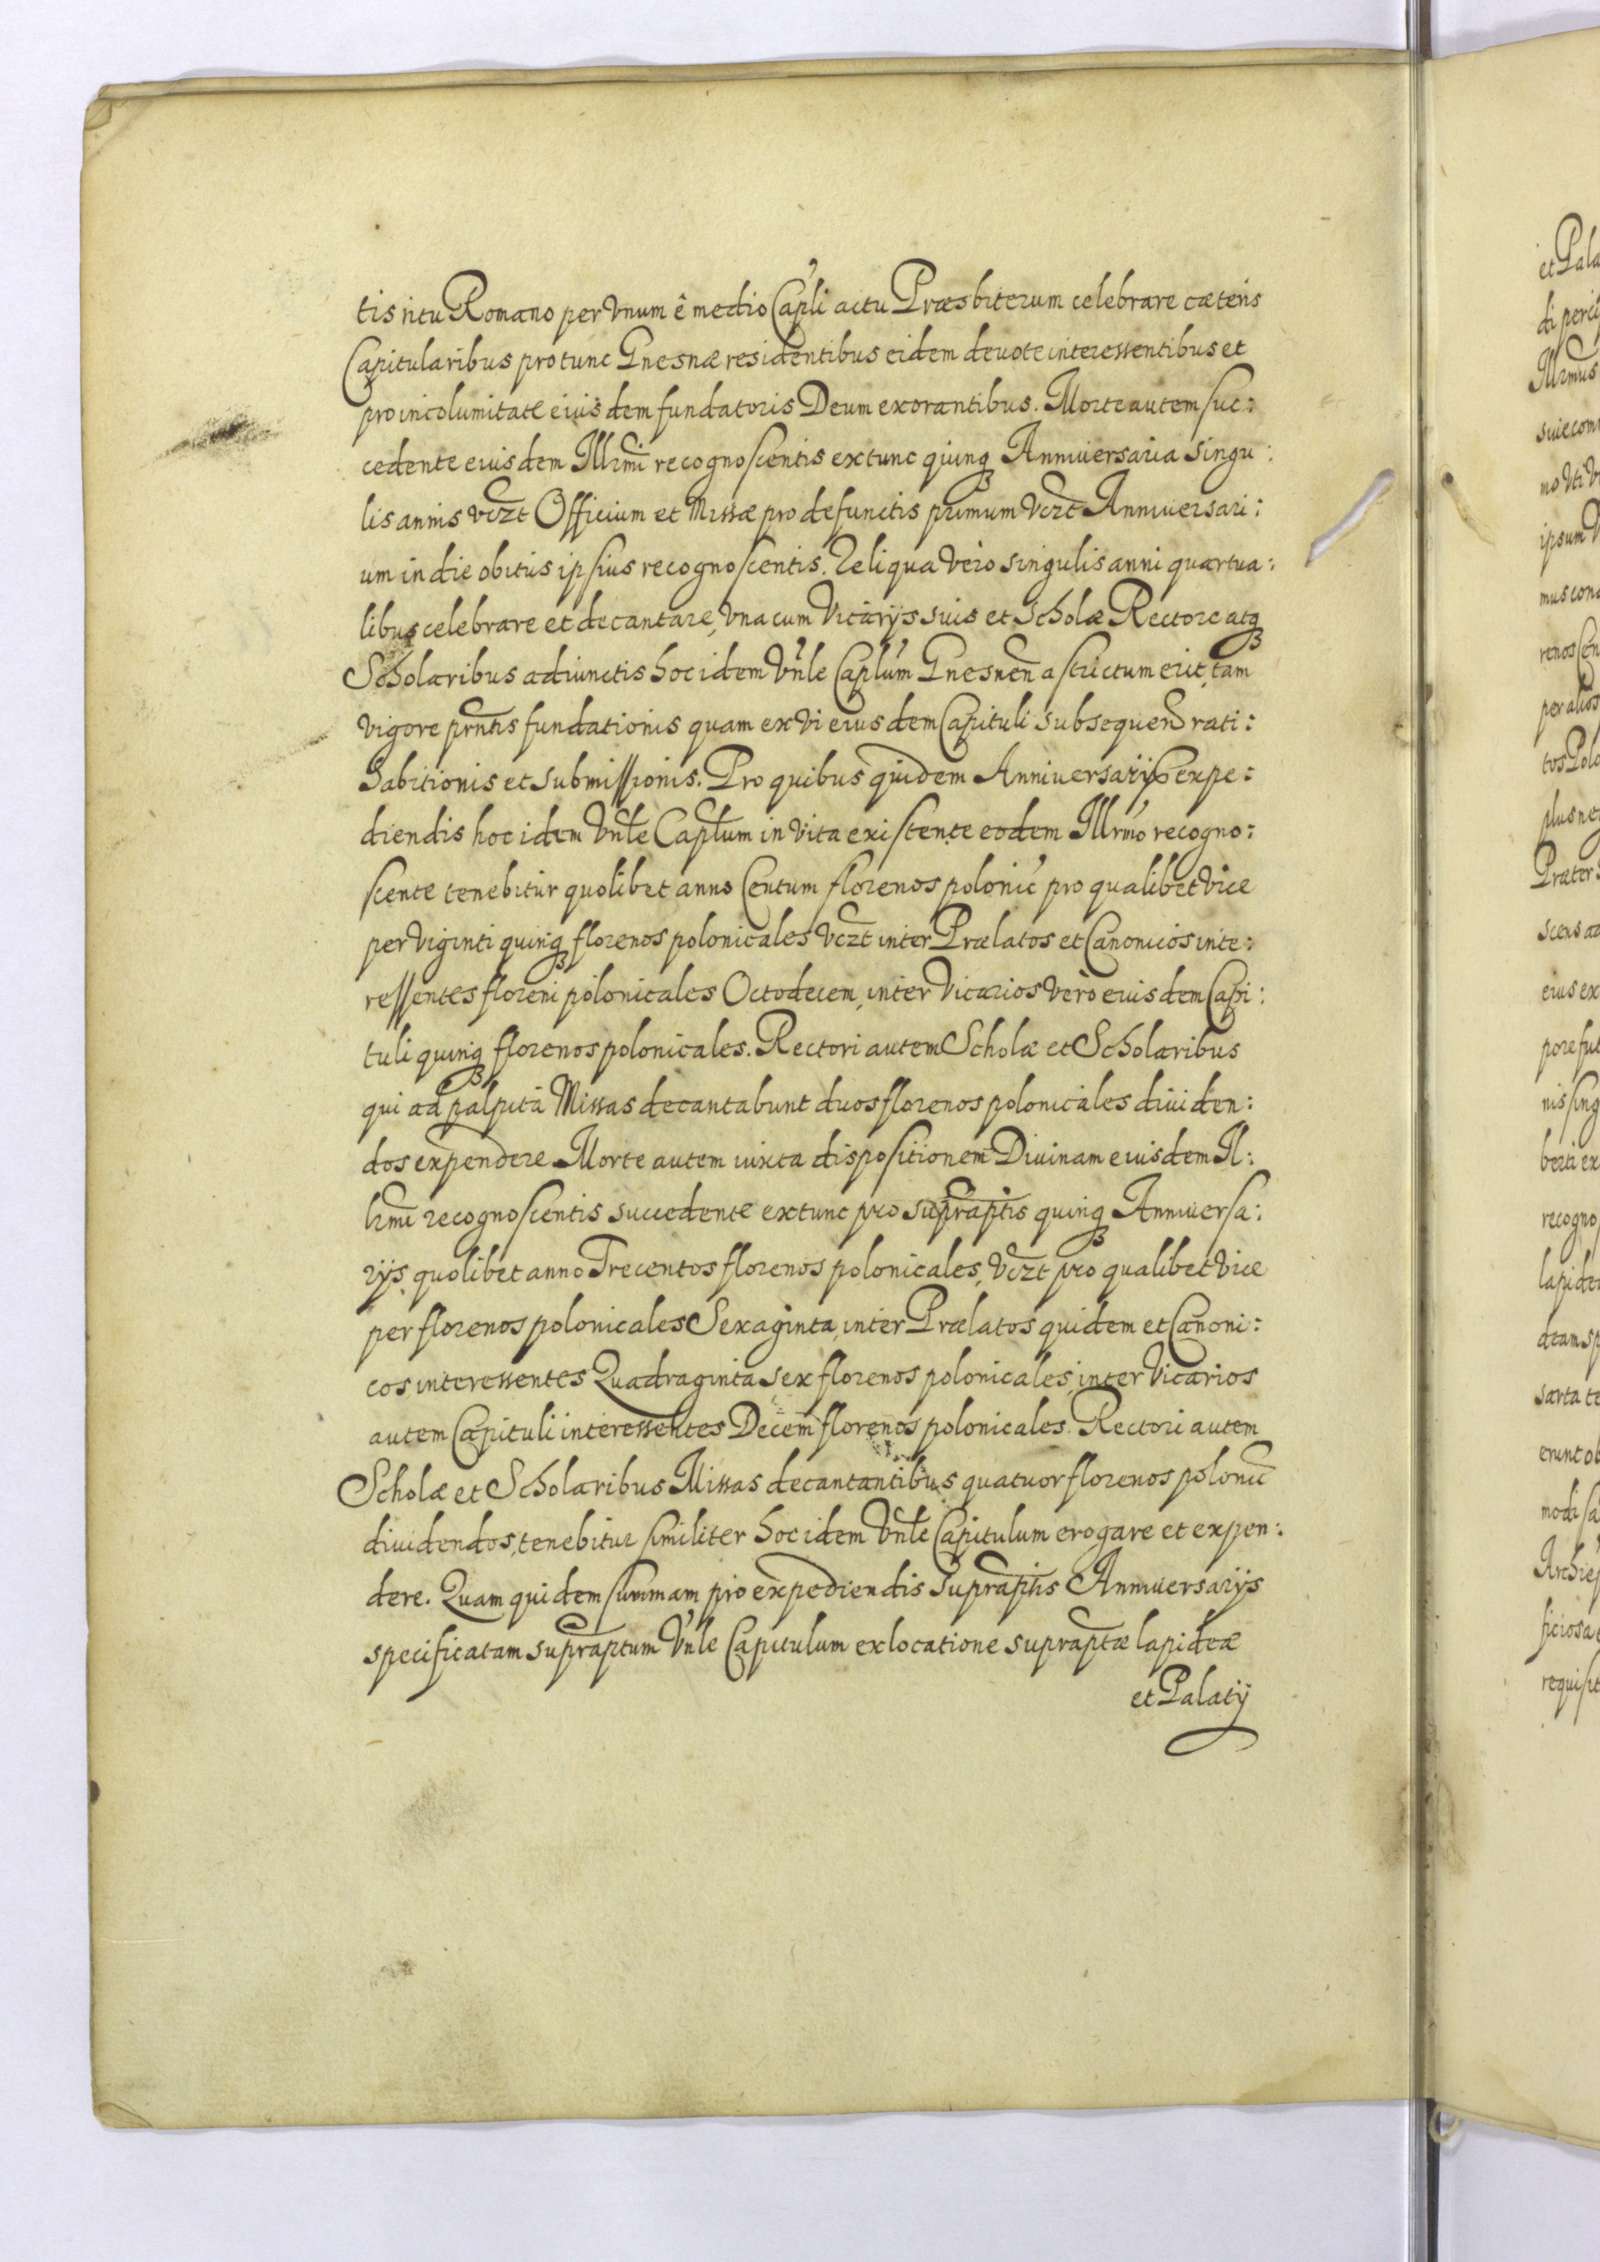 tis ritu Romano per Vnum ê medio Capli actu Præsbiterum celebrare cæteris
Capitularibus pro tunc Gnesnæ residentibus eidem deuote interessentibus et
pro incolumitate eiusdem fundatoris Deum exorantibus. Morte autem suc:
cedente eiusdem Illrmi recognoscentis extunc quinqȝ Anniuersaria singu:
lis annis vczt Officium et Missæ pro defunctis primum Vczt Anniuersari:
um in die obitus ipsius recognoscentis. Reliqua Vero singulis anni quartua:
libus celebrare et decantare, Vna cum Vicarijs suis et Scholæ Rectore atqȝ
Scholaribus adiunctis hoc idem Vnle Caplum Gnesnen astrictum erit, tam
vigore prntis fundationis quam ex Vi eiusdem Capituli subsequen rati:
habitionis et submissionis. Pro quibus quidem Anniuersarijs expe:
diendis hoc idem Vnle Caplum in Vita existente eodem Illrmo recogno:
scente tenebitur quolibet anno Centum florenos polonic pro qualibet Vice
per Viginti quinqȝ florenos polonicales Vczt inter Prælatos et Canonicos inte:
ressentes floreni polonicales Octodecem, inter Vicarios Vero eiusdem Capi:
tuli quinqȝ florenos polonicales. Rectori autem Scholæ et Scholaribus
qui ad palpita Missas decantabunt duos florenos polonicales diuiden:
dos expendere Morte autem iuxta dispositionem Diuinam eiusdem Il:
lrmi recognoscentis succedente extunc pro supraptis quinqȝ Anniuersa:
rijs, quolibet anno Trecentos florenos polonicales, Vczt pro qualibet Vice
per florenos polonicales Sexaginta, inter Prælatos quidem et Canoni:
cos interessentes Quadraginta sex florenos polonicales, inter Vicarios
autem Capituli interessentes Decem florenos polonicales. Rectori autem
Scholæ et Scholaribus Missas decantantibus quatuor florenos polonic
diuidendos, tenebitur similiter hoc idem Vnle Capitulum erogare et expen:
dere. Quam quidem summam pro expediendis supraptis Anniuersarijs
specificatam supraptum Vnle Capitulum ex locatione supraptæ lapideæ
et Palatij